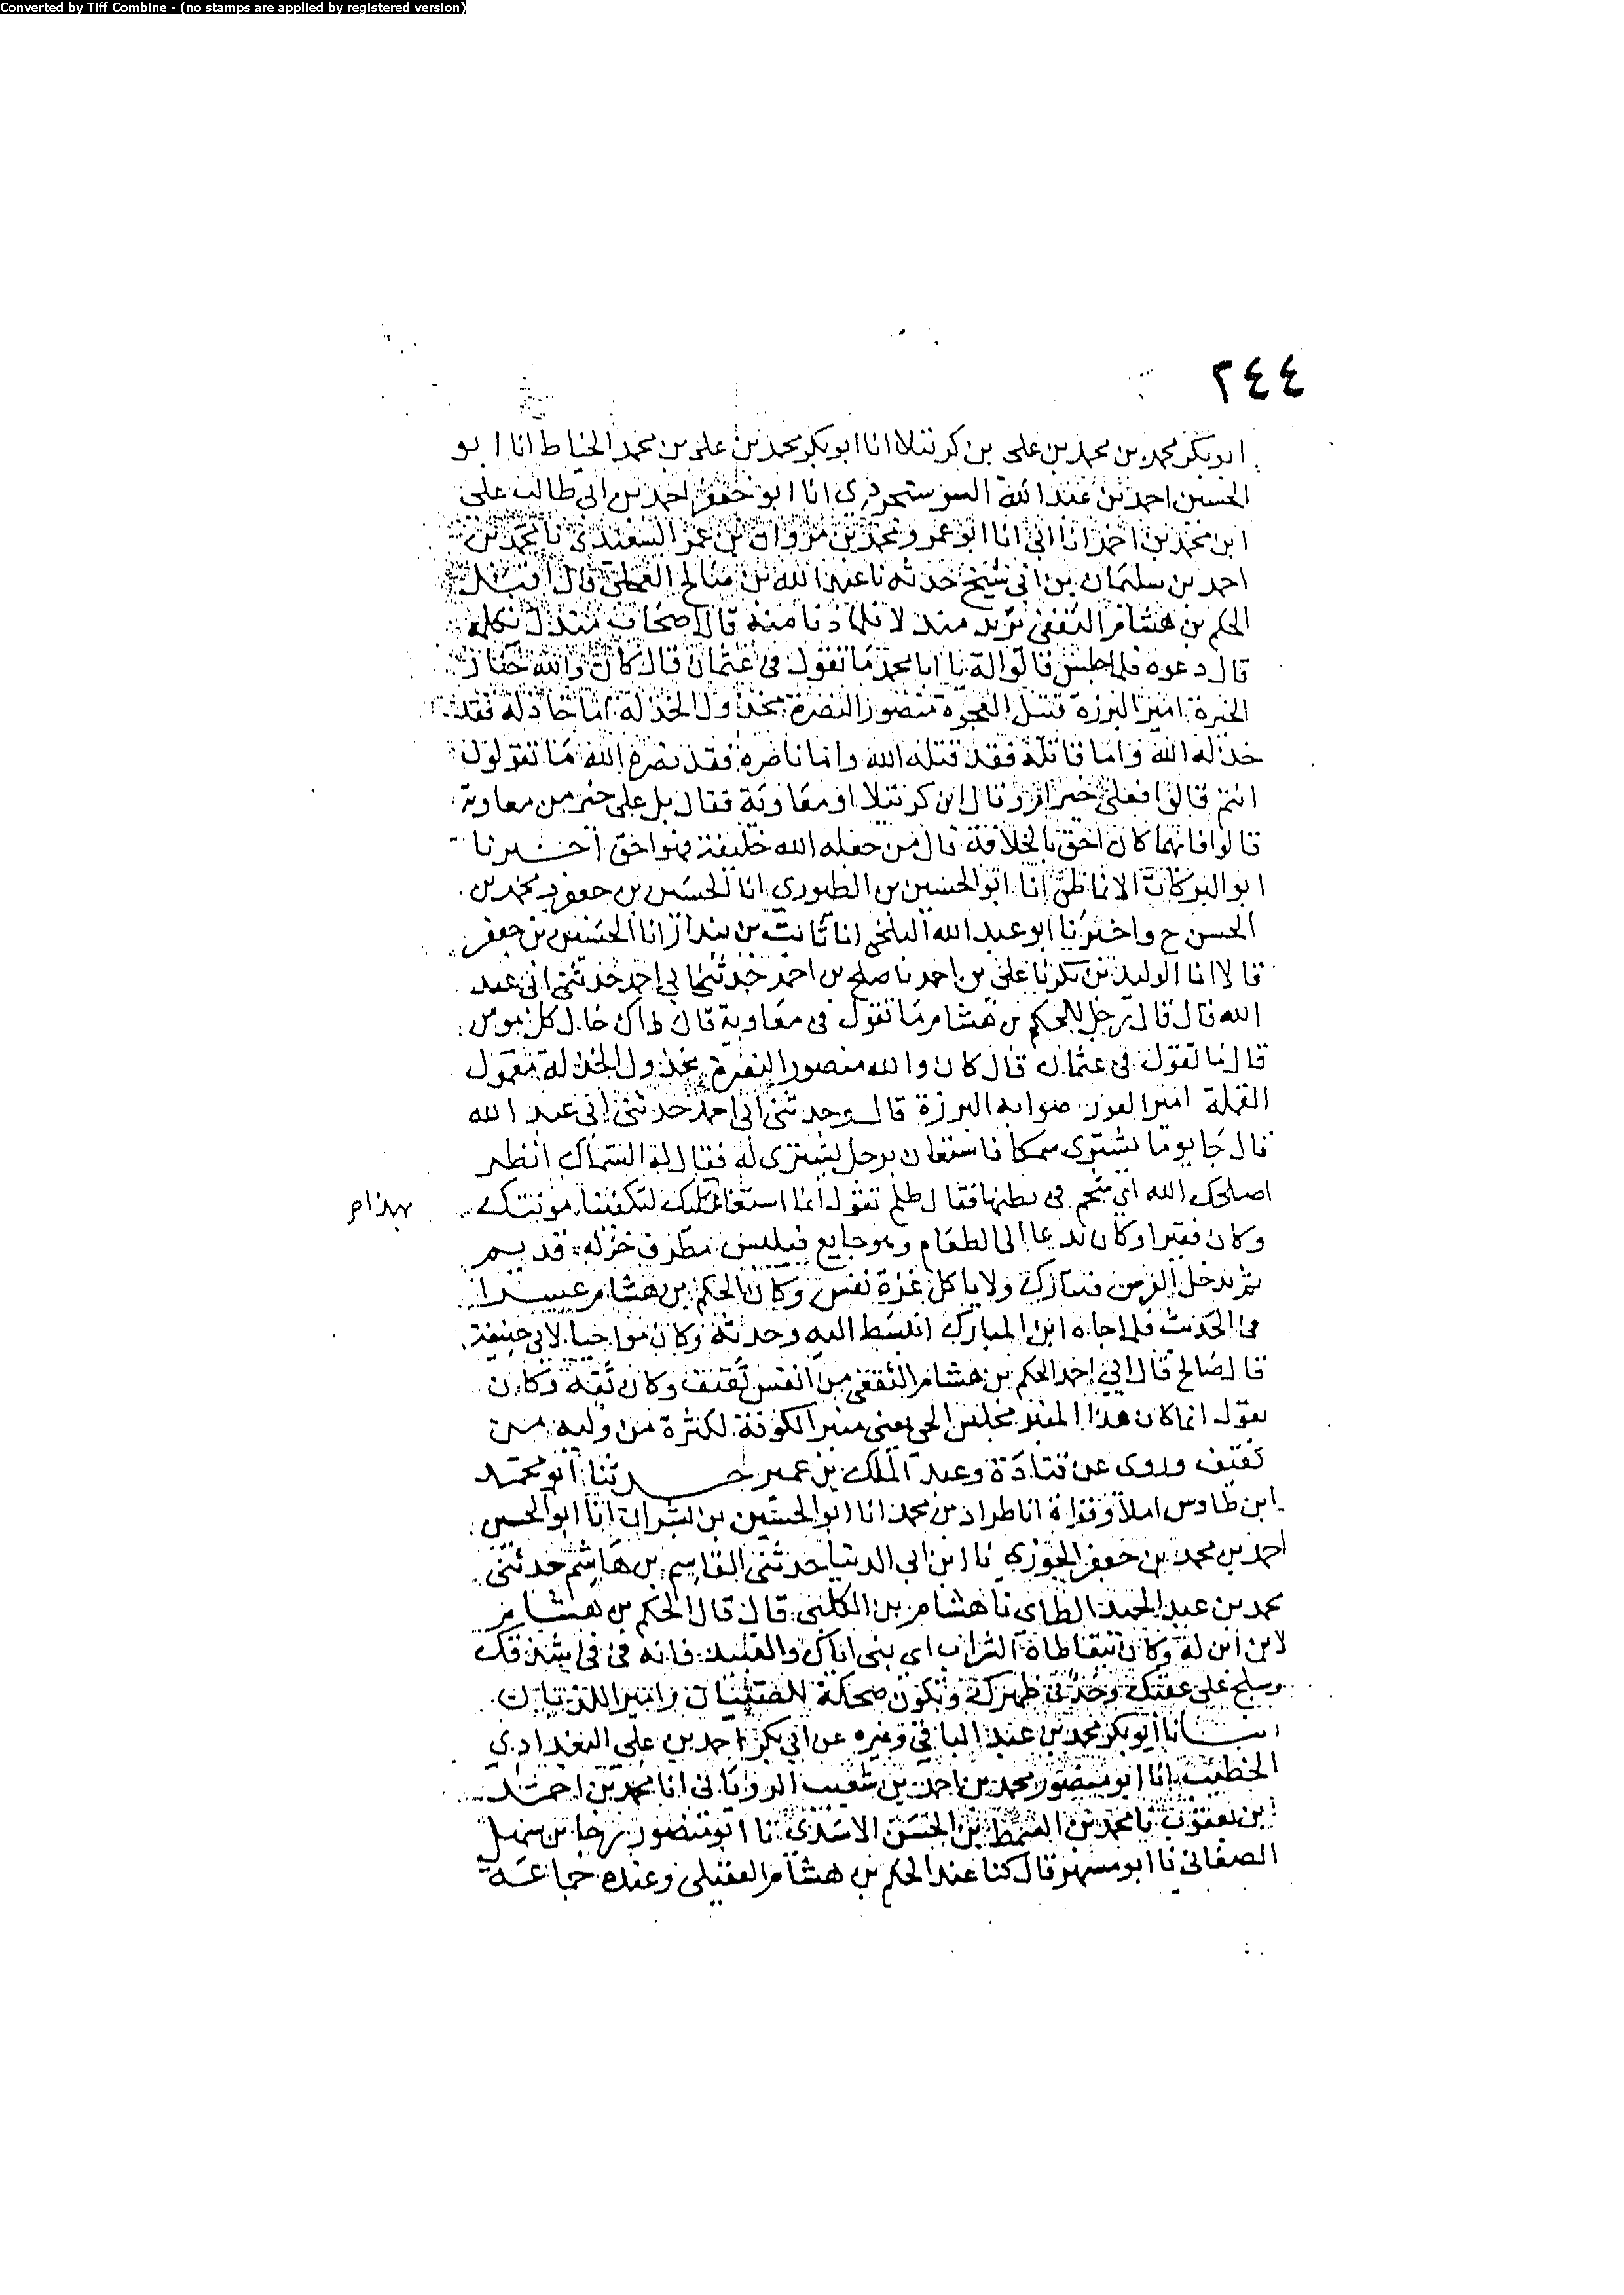 Converted by Tiff Combine - (no stamps are applied by registered version)
٢٤٤
ابو بكر محمد بن محمد بن على بن كرتيلا انا ابو بكر محمد بن على بن محمد الخياط انا ابو
الحسين احمد بن عبد الله السوسنجردي انا ابو جعفر احمد بن ابى طالب على
ابن محمد بن احمد انا ابى انا ابو عمرو محمد بن مروان بن عمر السعيدى نا محمد بن
احمد بن سليمان بن ابى شيخ حدثه نا عبد الله بن صالح العجلى قال اقبل
الحكم بن هشام الثقفى يريد مندلا فلما دنا منه قال اصحاب مندل نكلمه
قال دعوه فلما جلس قالوا له يا ابا محمد ما تقول فى عثمان قال كان والله خيار
الخيرة امير البررة قتيل الفجرة منصور النصرة مخذول الخذلة اما خاذله فقد
خذله الله واما قاتله فقد قتله الله واما ناصره فقد نصره الله ما تقولون
انتم قالوا فعلى خير ام وقال ابن كرتيلا او معاوية فقال بل على خير من معاوية
قالوا فايهما كان احق بالخلافة قال من جعله الله خليفة فهو احق اخبرنا
ابو البركات الانماطى انا ابو الحسين بن الطيوري انا الحسين بن جعفر ومحمد بن
الحسن ح واخبرنا ابو عبد الله البلخى انا ثابت بن بندار انا الحسين بن جعفر
قالا انا الوليد بن بكر نا على بن احمد نا صلح بن احمد حدثنى ابى احمد حدثنى ابى عبد
الله قال قال رجل للحكم بن هشام ما تقول فى معاوية قال ذاك خال كل مومن
قال ما تقول فى عثمان قال كان والله منصور النصرة مخذول الخذلة مقتول
القتلة امير العزز صوابه البررة قال وحدثنى ابى احمد حدثنى ابى عبد الله
قال جا يوما يشترى سمكا فاستعان برجل يشترى له فقال له السماك انظر
اصلحك الله اى شحم فى بطنها فقال ظلم تقول انما استعنا عليك لتكفينا مؤنتك
بهذا م
وكان فقيرا وكان يدعا الى الطعام وهو جايع فيلبس مطرف خز له قديم
ثم يدخل العرس فيبارك ولا ياكل عزة نفس وكان الحكم بن هشام عسيرا
فى الحديث فلما جاه ابن المبارك انبسط اليه وحدثه وكان مواخيا لابى حنيفة
قال صالح قال ابى احمد الحكم بن هشام الثقفى من انفس ثقيف وكان ثقة وكان
يقول انما كان هذا المنبر مجلس الحى يعنى منبر الكوفة لكثرة من وليه من
ثقيف وروى عن قتادة وعبد الملك بن عمير حدثنا ابو محمد
ابن طاوس املا وقراة انا طراد بن محمد انا ابو الحسين بن بشران انا ابو الحسن
احمد بن محمد بن جعفر الجوزي نا ابن ابى الدنيا حدثنى القاسم بن هاشم حدثنى
محمد بن عبد الحميد الطاى نا هشام بن الكلبى قال قال الحكم بن هشام
لابن ابن له وكان يتعاطاه الشراب اى بنى اياك والنبيذ فانه قى فى شدقك
وسلح على عقبك وحد فى ظهرك وتكون ضحكة للصبيان واميرا للذبان
انبانا ابو بكر محمد بن عبد الباقى وغيره عن ابى بكر احمد بن على البغدادي
الخطيب انا ابو منصور محمد بن احمد بن شعيب الرويانى انا محمد بن احمد
ابن يعقوب نا محمد بن الحسن الاسدى نا ابو منصور رجا بن سهل
الصغانى نا ابو مسهر قال كنا عند الحكم بن هشام العقيلى وعنده جماعة